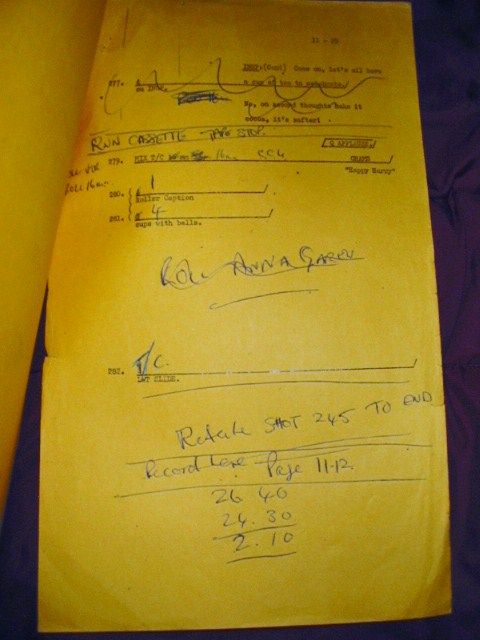 INSP:(Cont) Come on, let's all have
277. a cup of tea to celebrate.
on INSP.
No, on second thoughts make it
cocoa, it's safter!
RUN CASSETTE TAPE STOP.
S APPLAUSE
279. MIX T/C 16m. CC4 GRAMS
"Happy Harry"
ROLL 16m
280. 1
Roller Caption
281. 4
cups with balls.
ROLL ANNA
282. T/C.
LWT SLIDE.
Retake SHOT 245 TO END
Record here Page 11-12.
26 40
24.30
2.10